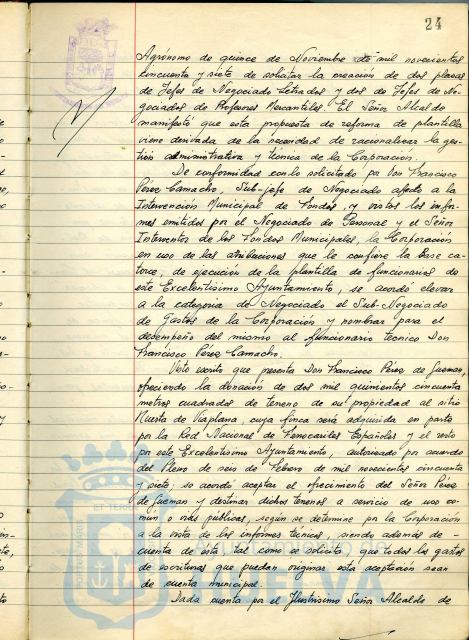 24
Agrónomo de quince de Noviembre de mil novecientos
cincuenta y siete de solicitar la creación de dos plazas
de Jefes de Negociado Letrados y dos de Jefes de Ne-
gociados de Profesores Mercantiles. El Señor Alcalde
manifestó que esta propuesta de reforma de plantilla
viene derivada de la necesidad de racionalizar la ges-
tión administrativa y técnica de la Corporación.
De conformidad con lo solicitado por Don Francisco
Pérez Camacho, Sub-jefe de Negociado afecto a la
Intervención Municipal de Fondos, y vistos los infor-
mes emitidos por el Negociado de Personal y el Señor
Interventor de los Fondos Municipales, la Corporación
en uso de las atribuciones que le confiere la Base ca-
torce, de ejecución de la plantilla de funcionarios de
este Excelentísimo Ayuntamiento, se acordó elevar
a la categoría de Negociado el Sub-Negociado
de Gastos de la Corporación y nombrar para el
desempeño del mismo al funcionario técnico Don
Francisco Pérez Camacho.
Visto escrito que presenta Don Francisco Pérez de Guzman,
ofreciendo la donación de dos mil quinientos cincuenta
metros cuadrados de terreno de su propiedad al sitio
Huerta de Viaplana, cuya finca será adquirida en parte
por la Red Nacional de Ferrocarriles Españoles y el resto
por este Excelentísimo Ayuntamiento, autorizado por acuerdo
del Pleno de seis de Febrero de mil novecientos cincuenta
y siete: se acordó aceptar el ofrecimiento del Señor Pérez
de Guzman y destinar dichos terrenos a servicio de uso co-
mún o vías públicas, según se determine por la Corporación
a la vista de los informes técnicos, siendo además de
cuenta de ésta, tal como se solicita, que todos los gastos
de escrituras que puedan originar esta aceptación sean
de cuenta municipal.
Dada cuenta por el Ilustrísimo Señor Alcalde de